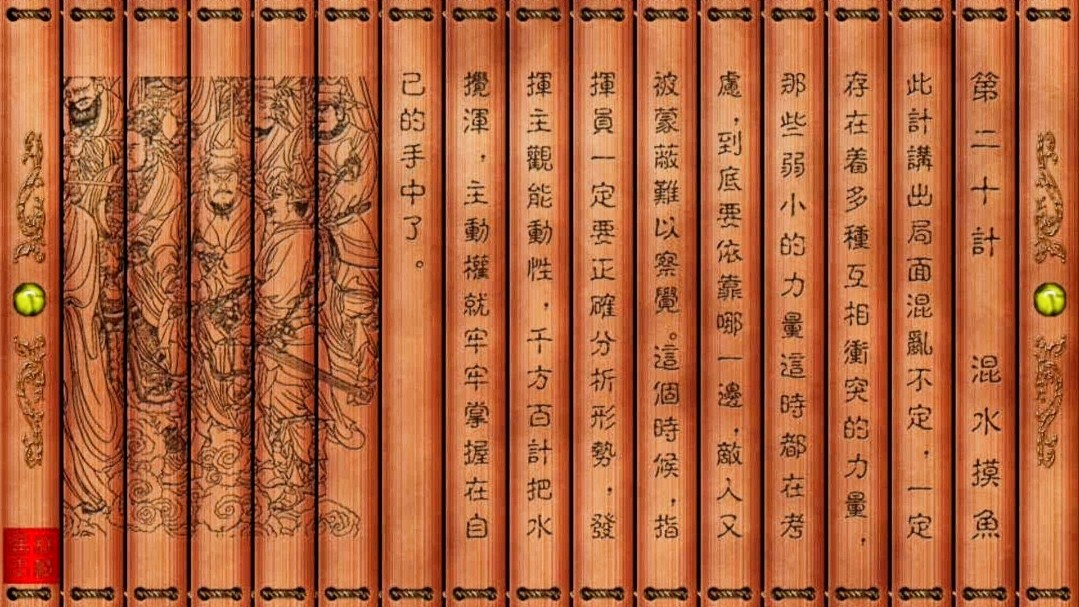 第二十計 混水摸魚
此計講出局面混亂不定，一定
存在着多種互相衝突的力量，
那些弱小的力量這時都在考
慮，到底要依靠哪一邊，敵人又
被蒙蔽難以察覺。這個時候，指
揮員一定要正確分折形勢，發
揮主觀能動性，千方百計把水
攪渾，主動權就牢牢掌握在自
己的手中了。